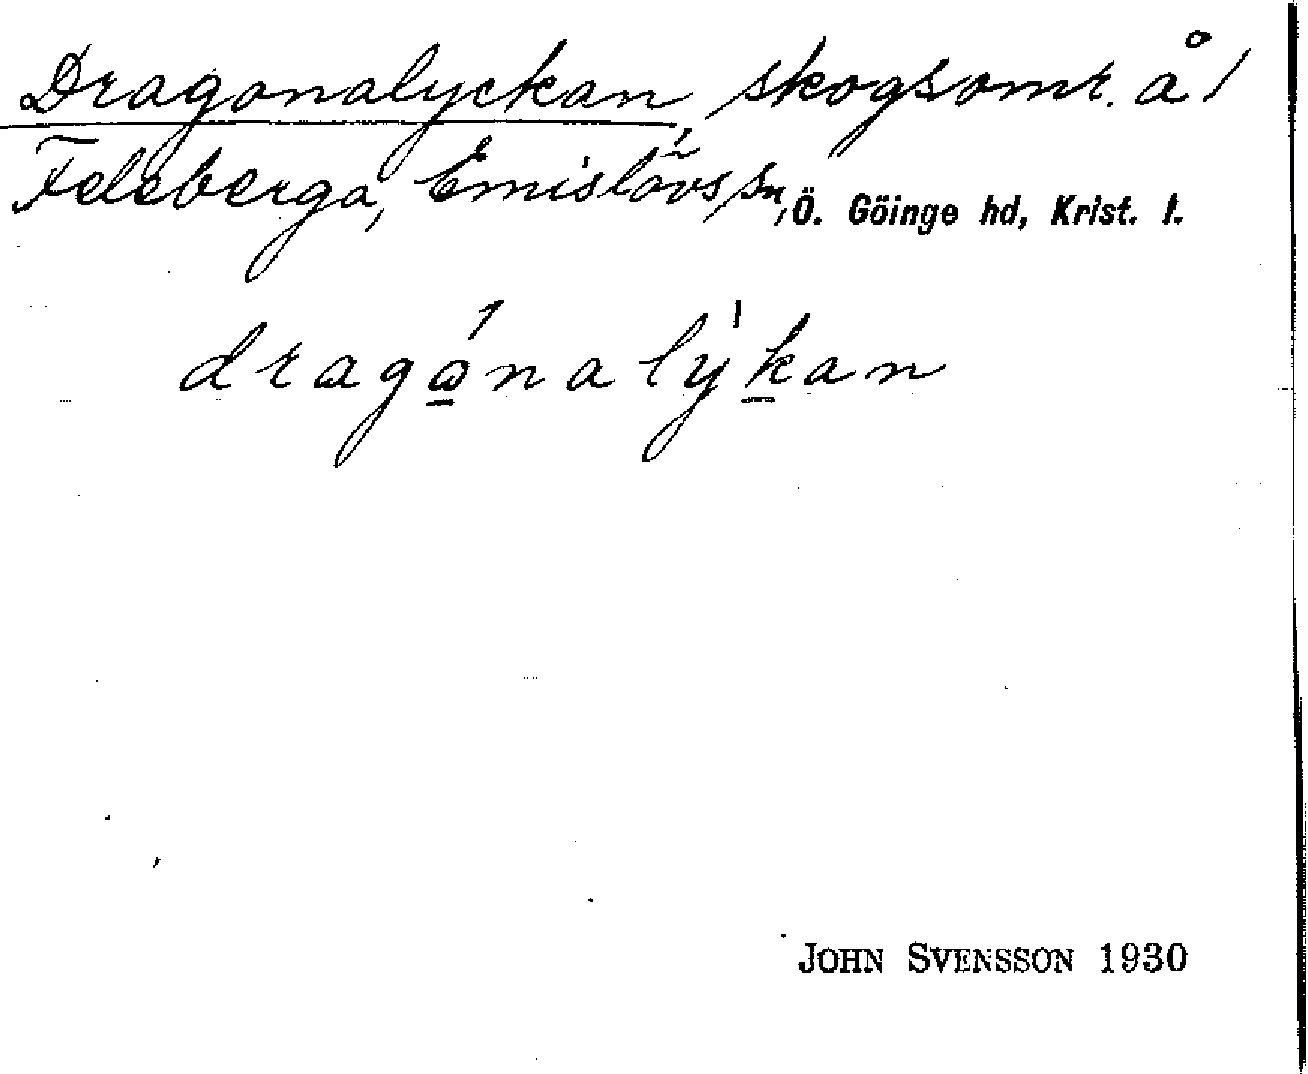 Dragonalyckan, skogsomr. å /
Feleberga, Emislövs sn, Ö. Göinge hd, Krist. l.
dragώnalýkan
JOHN SVENSSON 1930